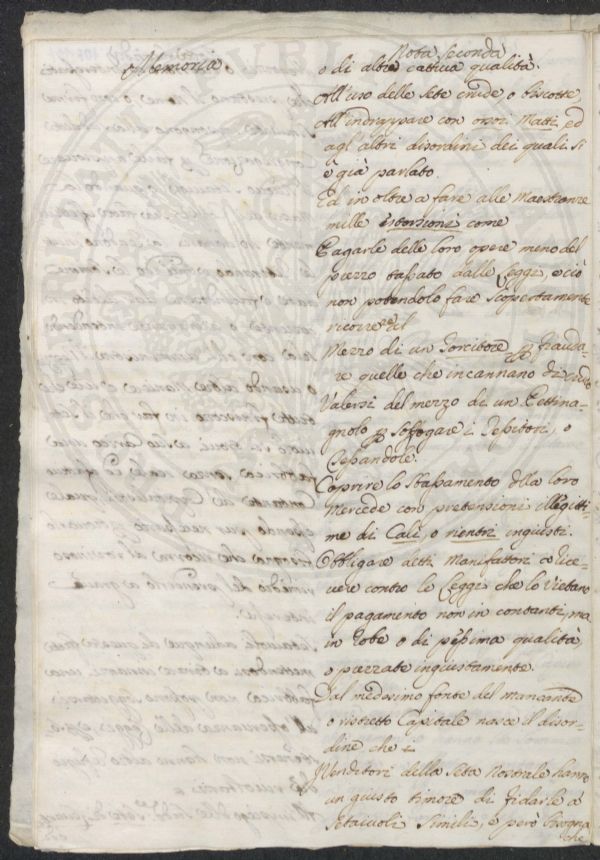 Memoria.
Nota Seconda
o di altre cattiva qualità.
All'uso delle Sete crude o biscotte,
All'indrappare con orsoi Matti, ed
agl'altri disordini dei quali si
è già parlato.
Ed in oltre a fare alle Maestranze
mille estorsioni come
Pagarle delle loro opere meno del
prezzo tassato dalle Leggi, e ciò
non potendolo fare scopertamente
ricorrere il
Mezzo di un Torcitore p frauda-
re quelle che incannano
Valersi del mezzo di un Pettina-
gnolo p Soffogare i Tessitori, o
Coprire lo sbassamento della loro
Mercede con pretensioni illegitti-
me di Cali, o rientri ingiusti.
Obbligare detti Manifattori a rice-
vere contro le Leggi che lo Vietano
il pagamento non in contanti, ma
in robe o di pessima qualità
o prezzate ingiustamente.
Dal medesimo fonte del mancante
o ristretto Capitale nasce il disor-
dine che i
Venditori della Seta Nostrale hanno
un giusto timore di fidarle a
Setaiuoli simili, e però bisogna
che